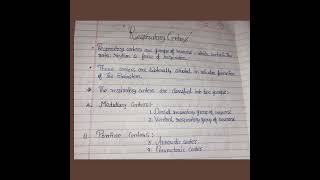 "Respiratory Centers"
• Respiratory centers are groups of neurons which controls the
rate, rhythm & force of respiration.
• These centers are bilaterally situated in reticular formation
of the Brainstem.
The respiratory centers are classified into two groups:
A. Medullary Centers:
1. Dorsal respiratory group of neurons
2. Ventral respiratory group of neurons
B) Pontine Centers:
3. Apneustic center
4. Pneumotaxic center